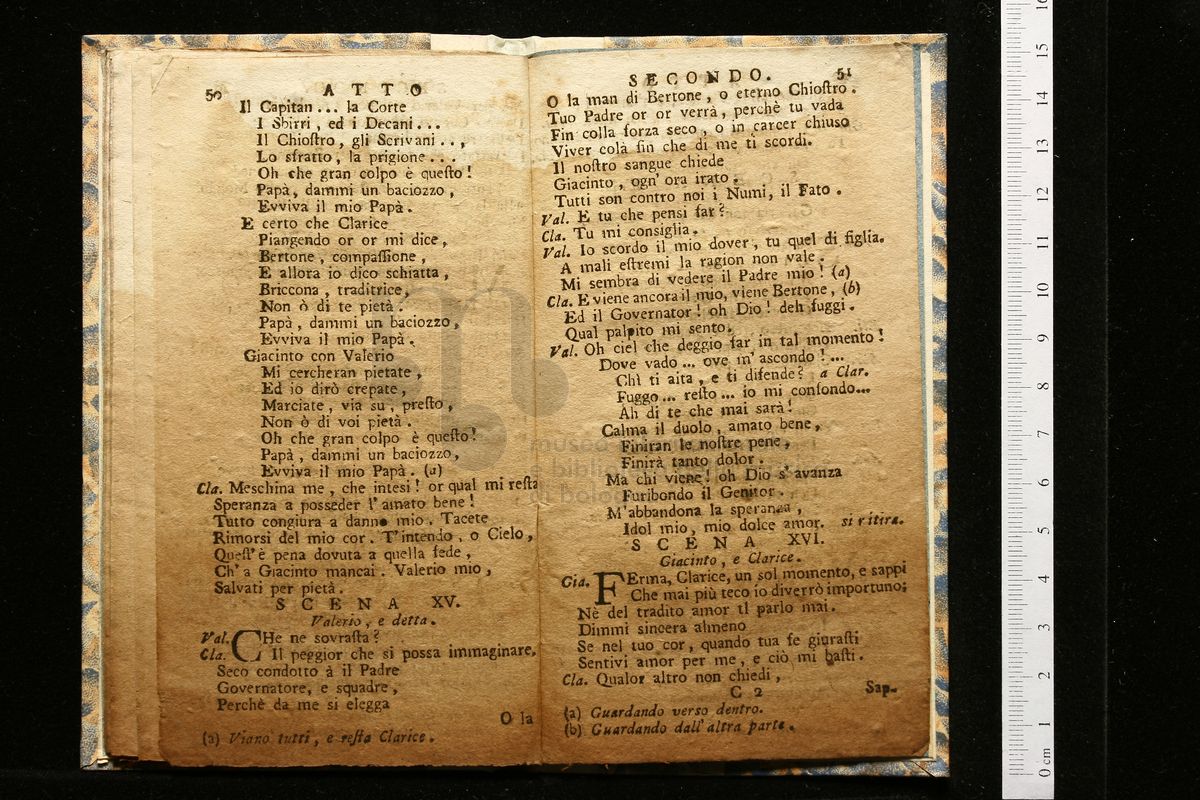 50 ATTO
Il Capitan... la Corte
I Sbirri, ed i Decani...
Il Chioſtro, gli Scrivani..,
Lo sfratto, la prigione...
Oh che gran colpo è queſto!
Papà, dammi un baciozzo,
Evviva il mio Papà.
E certo che Clarice
Piangendo or or mi dice,
Bertone, compaſſione,
E allora io dico schiatta,
Briccona, traditrice,
Non ò di te pietà.
Papà, dammi un baciozzo,
Evviva il mio Papà.
Giacinto con Valerio
Mi cercheran pietate,
Ed io dirò crepate,
Marciate, via su, preſto,
Non ò di voi pietà.
Oh che gran colpo è queſto!
Papà, dammi un baciozzo,
Evviva il mio Papà. (a)
Cla. Meschina me, che intesi! or qual mi reſta
Speranza a posseder l'amato bene!
Tutto congiura a danno mio. Tacete
Rimorsi del mio cor. T'intendo, o Cielo,
Queſt'è pena dovuta a quella fede,
Ch'a Giacinto mancai. Valerio mio,
Salvati per pietà.
SCENA XV.
Valerio, e detta.
Val. CHe ne sovraſta?
Cla. Il peggior che si possa immaginare.
Seco condotto à il Padre
Governatore, e squadre,
Perchè da me si elegga
O la
(a) Viano tutti, e reſta Clarice.
SECONDO. 51
O la man di Bertone, o eterno Chioſtro.
Tuo Padre or or verrà, perchè tu vada
Fin colla forza seco, o in carcer chiuso
Viver colà fin che di me ti scordi.
Il noſtro sangue chiede
Giacinto, ogn'ora irato.
Tutti son contro noi i Numi, il Fato.
Val. E tu che pensi far?
Cla. Tu mi consiglia.
Val. Io scordo il mio dover, tu quel di figlia.
A mali eſtremi la ragion non vale.
Mi sembra di vedere il Padre mio! (a)
Cla. E viene ancora il mio, viene Bertone, (b)
Ed il Governator! oh Dio! deh fuggi.
Qual palpito mi sento.
Val. Oh ciel che deggio far in tal momento!
Dove vado... ove m'ascondo!...
Chì ti aita, e ti difende? a Clar.
Fuggo... reſto... io mi confondo...
Ah di te che mai sarà!
Calma il duolo, amato bene,
Finiran le noſtre pene,
Finirà tanto dolor.
Ma chi viene! oh Dio s'avanza
Furibondo il Genitor.
M'abbandona la speranza,
Idol mio, mio dolce amor. si ritira.
SCENA XVI.
Giacinto, e Clarice.
Gia. FErma, Clarice, un sol momento, e sappi
Che mai più teco io diverrò importuno;
Nè del tradito amor ti parlo mai.
Dimmi sincera almeno
Se nel tuo cor, quando tua fe giuraſti
Sentivi amor per me, e ciò mi baſti.
Cla. Qualor altro non chiedi,
C 2 Sap-
(a) Guardando verso dentro.
(b) Guardando dall'altra parte.
0 cm 1 2 3 4 5 6 7 8 9 10 11 12 13 14 15 16